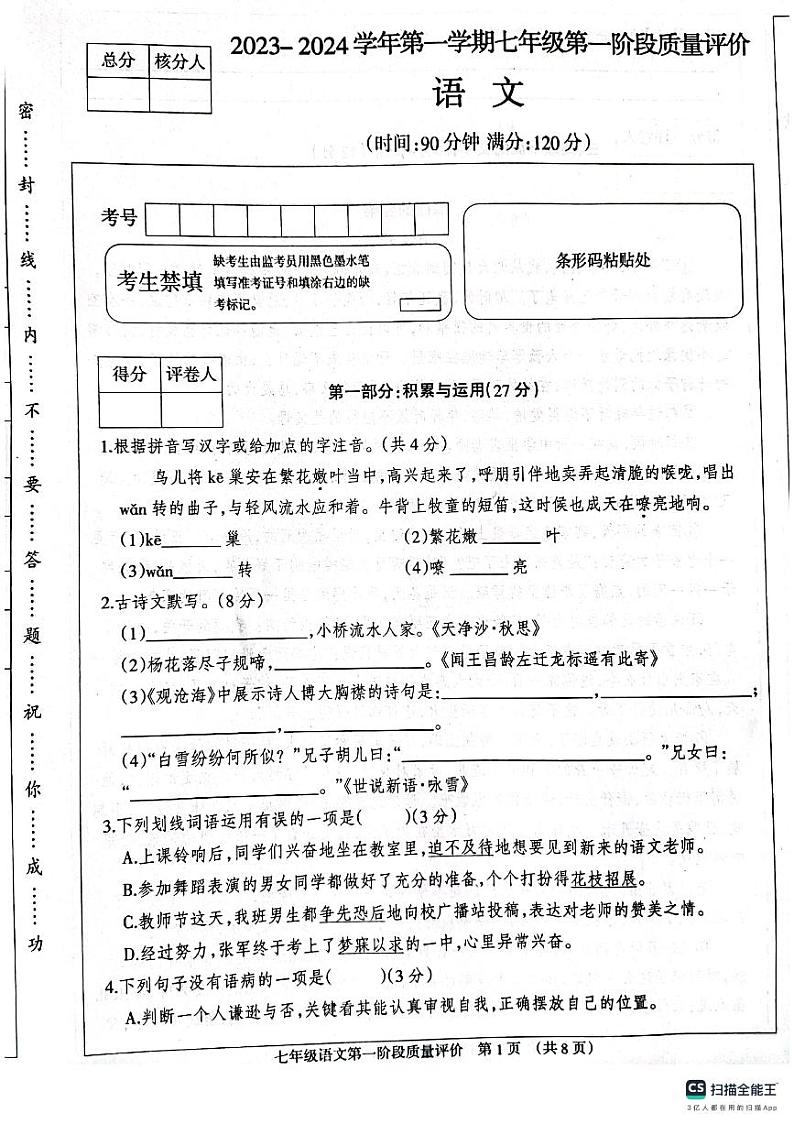 2023-2024学年第一学期七年级第一阶段质量评价
总分 核分人
语 文
(时间:90分钟 满分:120分)
密……封……线……内……不……要……答……题……祝……你……成……功
考号
考生禁填
缺考生由监考员用黑色墨水笔
填写准考证号和填涂右边的缺
考标记。
条形码粘贴处
得分 评卷人
第一部分:积累与运用(27分)
1.根据拼音写汉字或给加点的字注音。(共4分)
鸟儿将 kē 巢安在繁花嫩叶当中,高兴起来了,呼朋引伴地卖弄起清脆的喉咙,唱出
wǎn 转的曲子,与轻风流水应和着。牛背上牧童的短笛,这时候也成天在嘹亮地响。
(1)kē______ 巢 (2)繁花嫩 ______ 叶
(3)wǎn______ 转 (4)嘹 ______ 亮
2.古诗文默写。(8分)
(1)________________,小桥流水人家。《天净沙·秋思》
(2)杨花落尽子规啼,________________。《闻王昌龄左迁龙标遥有此寄》
(3)《观沧海》中展示诗人博大胸襟的诗句是:________________,________________;
________________,________________。
(4)“白雪纷纷何所似?”兄子胡儿曰:“________________。”兄女曰:
“________________。”《世说新语·咏雪》
3.下列划线词语运用有误的一项是( )(3分)
A.上课铃响后,同学们兴奋地坐在教室里,迫不及待地想要见到新来的语文老师。
B.参加舞蹈表演的男女同学都做好了充分的准备,个个打扮得花枝招展。
C.教师节这天,我班男生都争先恐后地向校广播站投稿,表达对老师的赞美之情。
D.经过努力,张军终于考上了梦寐以求的一中,心里异常兴奋。
4.下列句子没有语病的一项是( )(3分)
A.判断一个人谦逊与否,关键看其能认真审视自我,正确摆放自己的位置。
七年级语文第一阶段质量评价 第1页 (共8页)
CS 扫描全能王
3亿人都在用的扫描App